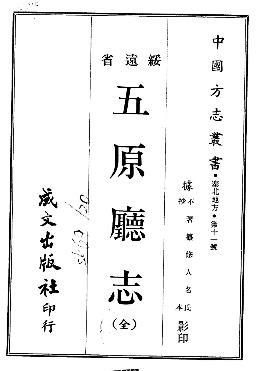 中國方志叢書·塞北地方·第十一號
據不著纂修人名氏抄本影印
綏遠省
五原廳志
(全)
成文出版社印行